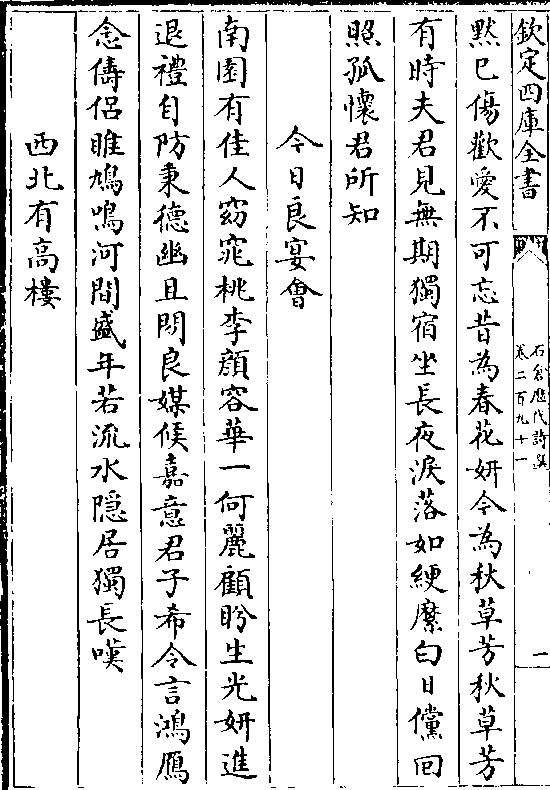 欽定四庫全書
石倉歷代詩選
卷二百九十一
一
黙已傷歡愛不可忘昔為春花妍今為秋草芳秋草芳
有時夫君見無期獨宿坐長夜淚落如綆縻白日儻回
照孤懷君所知
今日良宴會
南園有佳人窈窕桃李顔容華一何麗顧盻生光妍進
退禮自防秉德幽且閑良媒候嘉意君子希令言鴻鴈
念儔侣雎鳩鳴河間盛年若流水隠居獨長嘆
西北有高樓